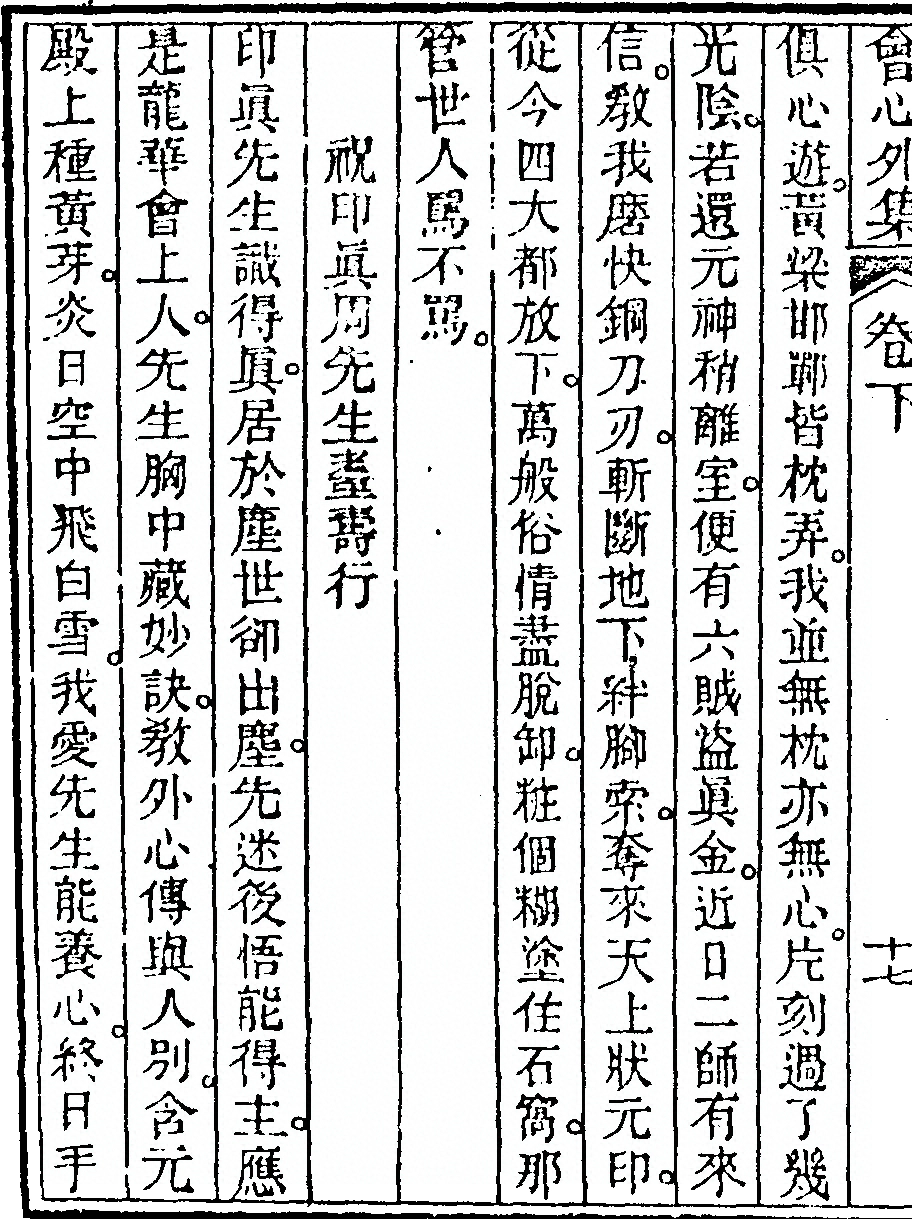 會心外集 卷下 十七
俱心遊。黃粱邯鄲皆枕弄。我並無枕亦無心。片刻過了幾
光陰。若還元神稍離室。便有六賊盜眞金。近日二師有來
信。敎我磨快鋼刀刃。斬斷地下絆腳索。奪來天上狀元印。
從今四大都放下。萬般俗情盡脫卸。粧個糊塗住石窩。那
管世人罵不罵。
祝印眞周先生壽行
印眞先生識得眞。居於塵世卻出塵。先迷後悟能得主。應
是龍華會上人。先生胸中藏妙訣。敎外心傳與人別。含元
殿上種黃芽。炎日空中飛白雪。我愛先生能養心。終日手